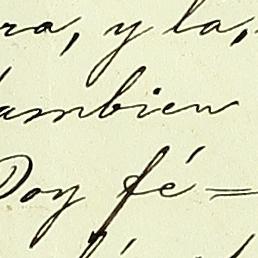 ra, y la,
ambien
Doy fé =